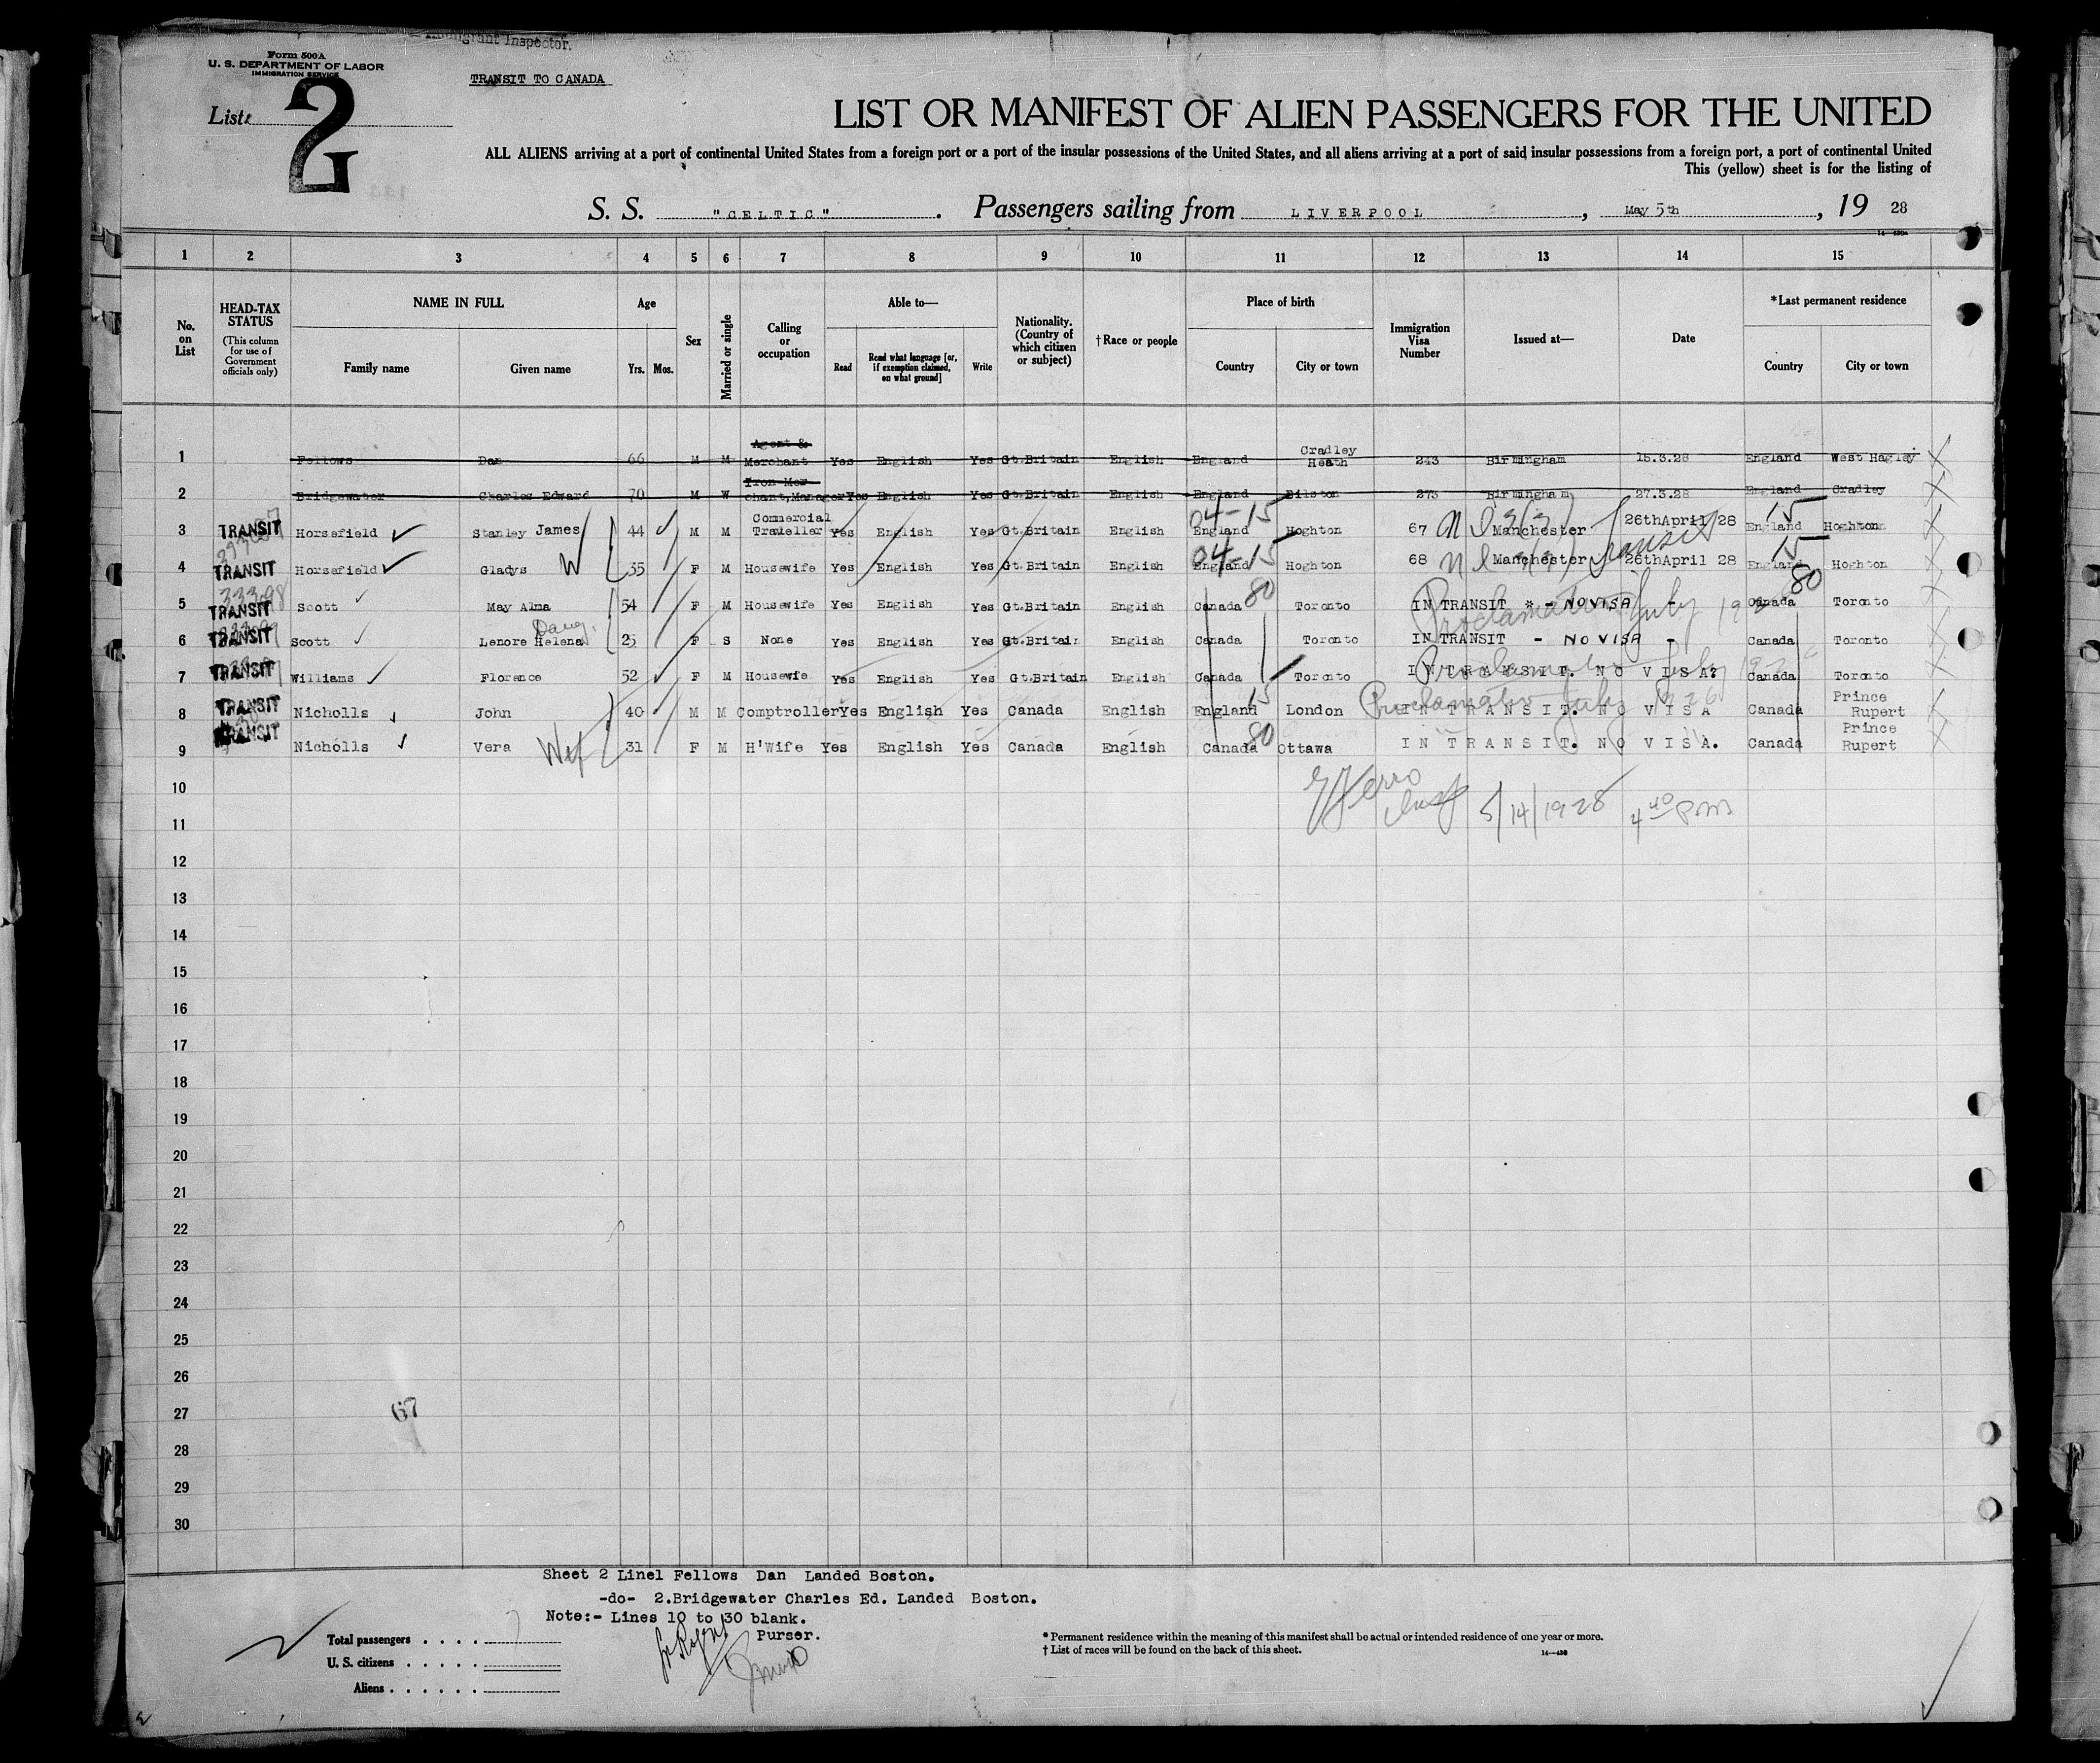 Immigrant Inspector.
Form 500A
U. S. DEPARTMENT OF LABOR
IMMIGRATION SERVICE
TRANSIT TO CANADA
List
2
LIST OR MANIFEST OF ALIEN PASSENGERS FOR THE UNITED
ALL ALIENS arriving at a port of continental United States from a foreign port or a port of the insular possessions of the United States, and all aliens arriving at a port of said insular possessions from a foreign port, a port of continental United
This (yellow) sheet is for the listing of
S. S. "CELTIC" . Passengers sailing from LIVERPOOL , May 5th , 19 28
1 2 3 4 5 6 7 8 9 10 11 12 13 14 15
No. on List
HEAD-TAX STATUS
(This column for use of Government officials only)
NAME IN FULL
Family name Given name
Age
Yrs. Mos.
Sex
Married or single
Calling or occupation
Able to—
Read Read what language [or, if exemption claimed, on what ground] Write
Nationality. (Country of which citizen or subject)
†Race or people
Place of birth
Country City or town
Immigration Visa Number
Issued at—
Date
*Last permanent residence
Country City or town
1 Fellows Dan 66 M M Agent & Merchant Yes English Yes Gt.Britain English England Cradley Heath 243 Birmingham 15.3.28 England West Hagley
2 Bridgewater Charles Edward 70 M W Iron Mer chant,Manager Yes English Yes Gt.Britain English England Bilston 273 Birmingham 27.3.28 England Cradley
3 TRANSIT Horsefield Stanley James 44 M M Commercial Traveller Yes English Yes Gt.Britain English 04-15 England Hoghton 67 Manchester 26thApril 28 15 England Hoghton
4 TRANSIT Horsefield Gladys W 35 F M Housewife Yes English Yes Gt.Britain English 04-15 England Hoghton 68 Manchester transit 26thApril 28 15 England Hoghton
5 TRANSIT Scott May Alma 54 F M Housewife Yes English Yes Gt.Britain English Canada 80 Toronto IN TRANSIT - NO VISA - Proclamation July 80 Canada Toronto
6 TRANSIT Scott Lenore Helena Daug. 25 F S None Yes English Yes Gt.Britain English Canada Toronto IN TRANSIT - NO VISA - Canada Toronto
7 TRANSIT Williams Florence 52 F M Housewife Yes English Yes Gt.Britain English Canada Toronto IN TRANSIT. NO VISA. Proclamation July 1926 Canada Toronto
8 TRANSIT Nicholls John 40 M M Comptroller Yes English Yes Canada English England 15 London IN TRANSIT. NO VISA Proclamation July 1926 Canada Prince Rupert
9 TRANSIT Nicholls Vera Wif 31 F M H'Wife Yes English Yes Canada English Canada 80 Ottawa IN TRANSIT. NO VISA. Canada Prince Rupert
10
5/14/1928 4 40 pm
11
12
13
14
15
16
17
18
19
20
21
22
23
24
25
26
27
67
28
29
30
Sheet 2 Line1 Fellows Dan Landed Boston.
-do- 2.Bridgewater Charles Ed. Landed Boston.
Note:- Lines 10 to 30 blank.
Purser.
Total passengers . . . . 7
U. S. citizens . . . . .
Aliens . . . . . .
* Permanent residence within the meaning of this manifest shall be actual or intended residence of one year or more.
† List of races will be found on the back of this sheet.